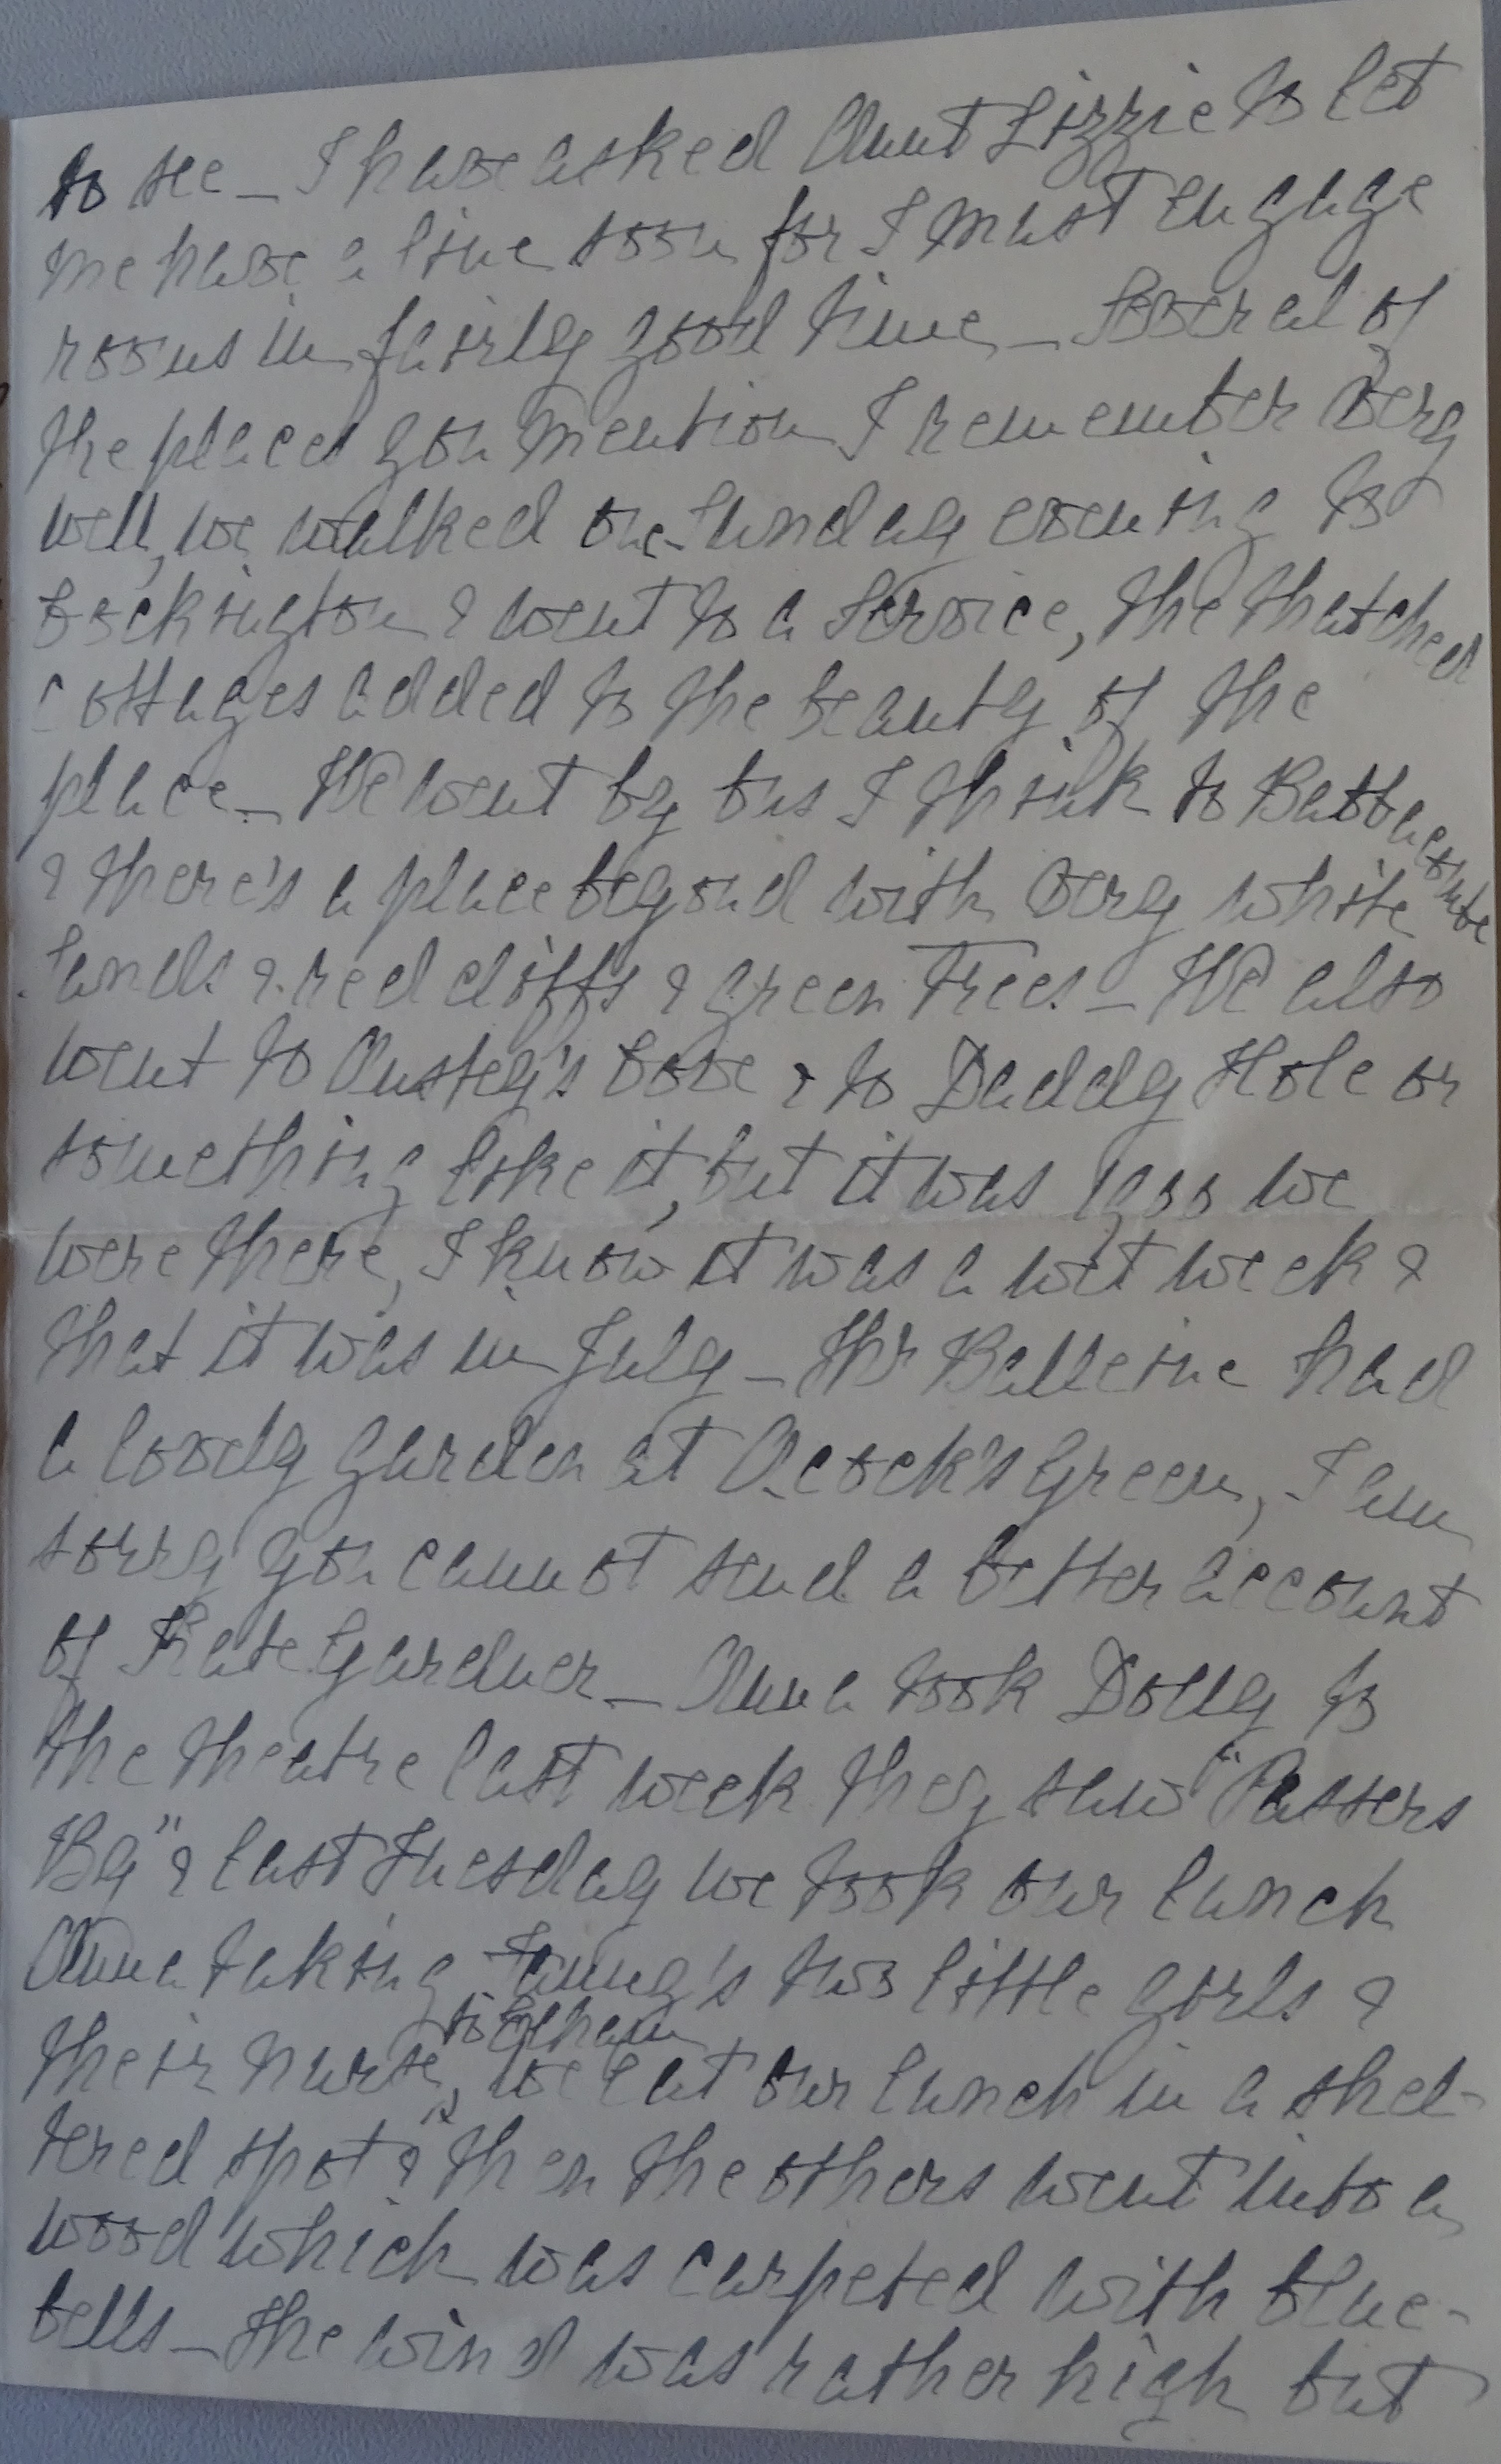 to see _ I have asked Aunt Lizzie to let
me have a line soon for I must engage
rooms in fairly good time _ Several of
the places you mention I remember very
well, we walked one Sunday evening to
Cockington & went to a Service, the thatched
cottages added to the beauty of the
place _ We went by bus I think to Babbacombe
& there's a place beyond with very white
sands & red cliffs & green trees _ We also
went to Anstey's Cove & to Daddy Hole or
something like it, but it was 1900 we
were there, I know it was a wet week &
that it was in July _ Mr Balleine had
a lovely garden at Acock's Green, I am
sorry you cannot send a better account
of Kate Gardner _ Anna took Dolly to
the theatre last week they saw "Passers
By" & last Tuesday we took our lunch
Anna taking Fanny's two little girls &
their nurse, we eat our lunch in a shel-
tered spot & then the others went into a
wood which was carpeted with blue-
bells _ the wind was rather high but